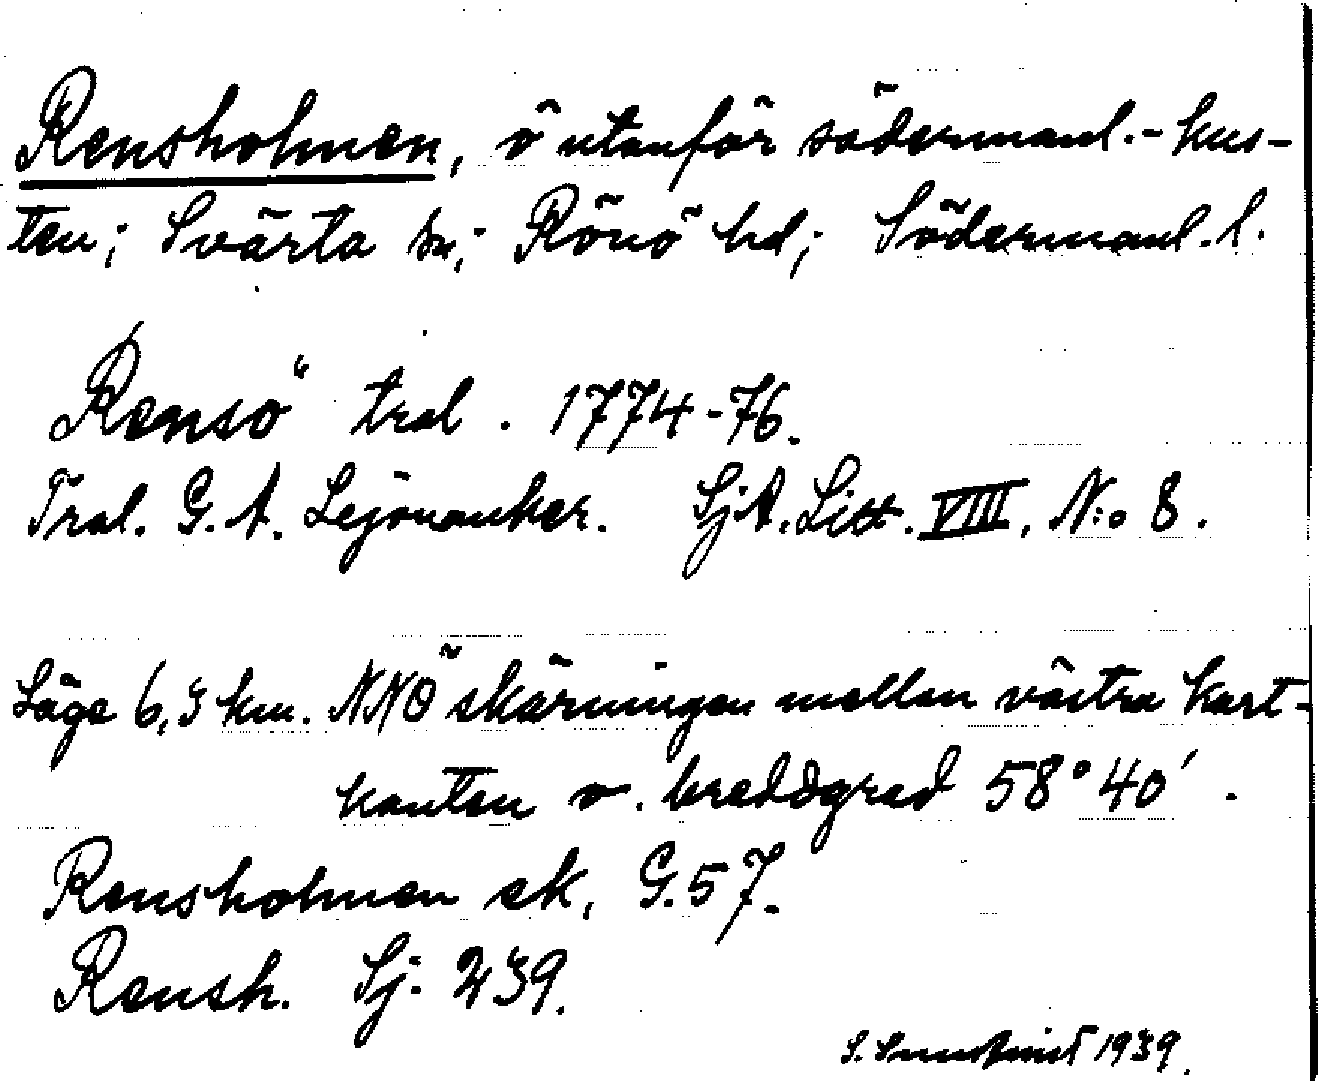 Rensholmen, ö utanför södermanl.-kus-
ten; Svärta sn; Rönö hd; Södermanl. l.
"Rensö" tral. 1774-76.
Tral. G. A. Lejonanker. SjA. Litt. VIII, N:o 8.
Läge 6,3 km. NNO skärningen mellan västra kart-
kanten o. breddgrad 58°40′.
Rensholmen ek, G.57.
Rensh. Sj. 239.
S. 1939.